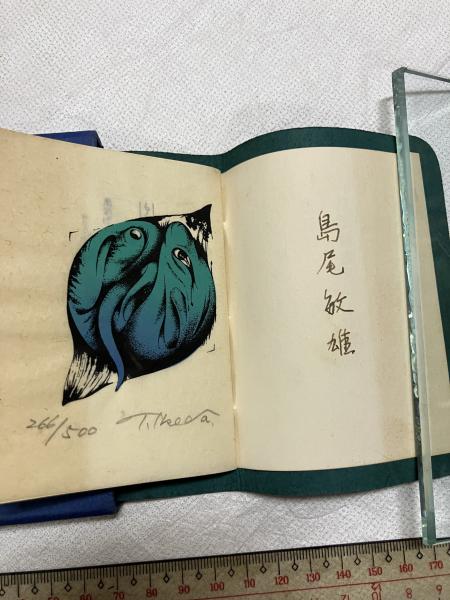 島尾敏雄
266/500 T.Ikeda.
70 80 90 100 110 120 130 140 150 160 170